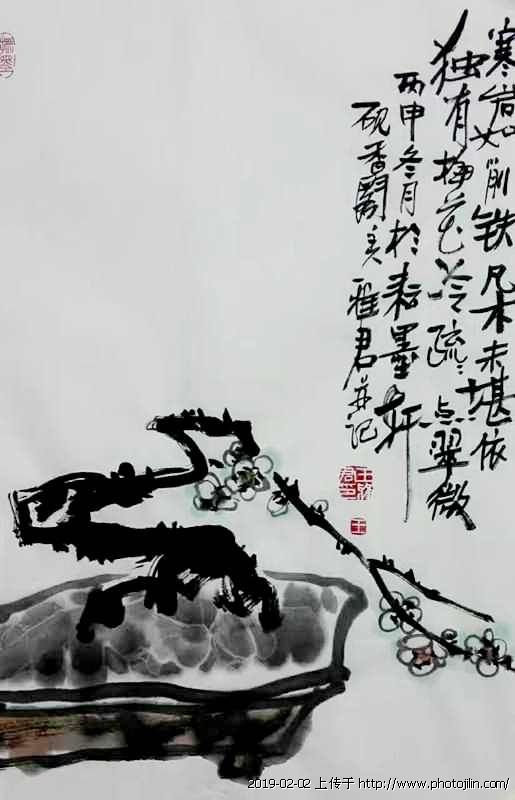 寒岩如削铁凡木未堪依
独有梅花冷疏〻点翠微
丙申冬月於墨轩
砚香雅君并记
王雅君印
王
2019-02-02 上传于 http://www.photojilin.com/